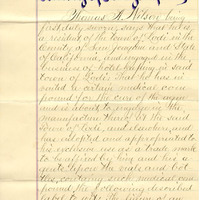 Thomas H. Wilson being
first duly sworn, says that he is
a resident of the town of Lodi in the
County of San Joaquin and State
of California, and engaged in the
business of hotel keeping in said
town of Lodi. That he has in
vented a certain medical com
pound for the cure of the
and is about to engage in the
manufacture thereof at the said
town of Lodi, and elsewhere, and
has adopted and appropriated to
his exclusive use as a trade mark
to be affixed by him and his a
gents upon the vials and bot
tles, containing such medical com
pound the following described
label to wit: The